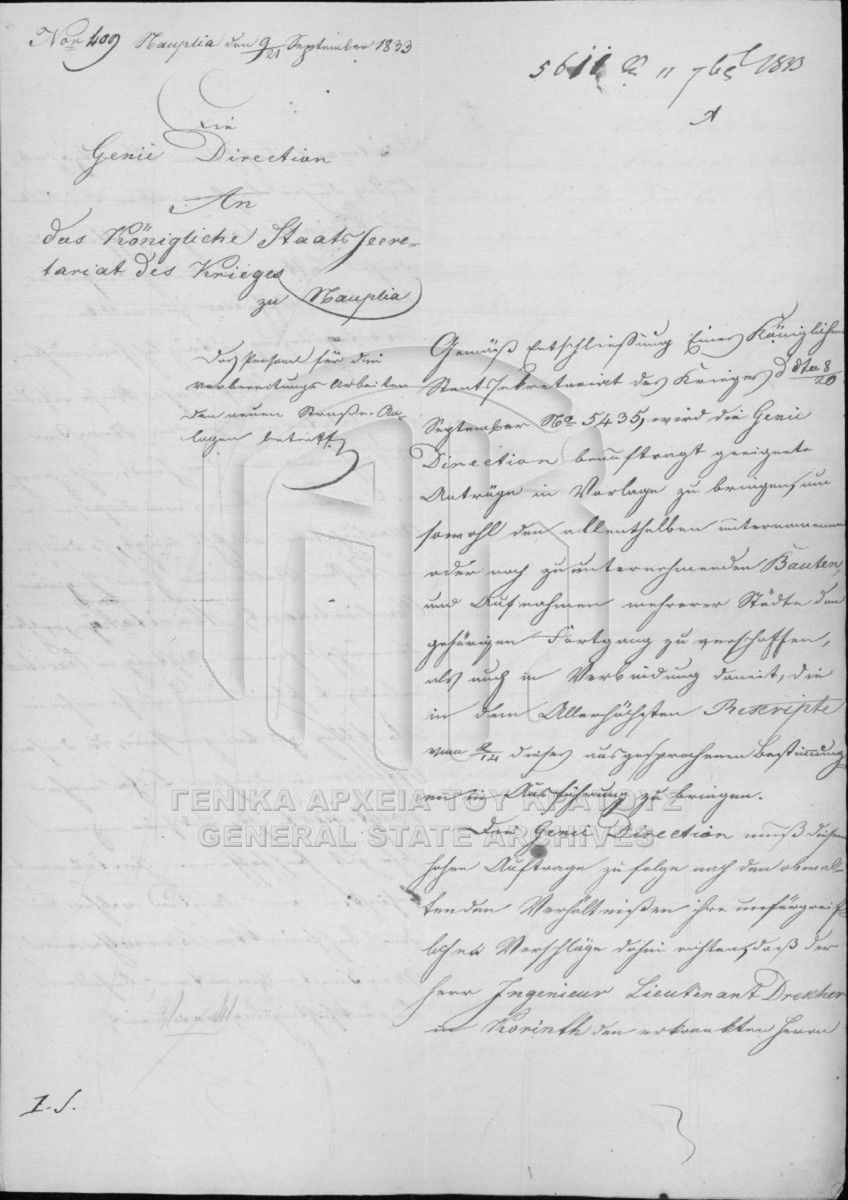 Nro 409 Nauplia den 9/21 September 1833
5611 7bre 1833
Die
Genie Direction
An
das Königliche Staatssecre-
tariat des Krieges
zu Nauplia
Das Personal für die
vorbereitungs Arbeiten
den neuen Straße-An-
lagen betreff.
Gemäß Entschließung Eines Königlichen
Staatssekretariat des Krieges dto 8/20
September No 5435, wird die Genie
Direction beauftragt geeignete
Anträge in Vorlage zu bringen, um
sowohl den allenthalben unternommenen
oder noch zu unternehmenden Bauten,
und Aufnahmen mehrerer Städte den
gehörigen Fortgang zu verschaffen,
als auch in Verbindung damit, die
in dem Allerhöchsten Rescripte
vom 2/14 dieses ausgesprochenen Bestimmung-
en in Ausführung zu bringen.
Die Genie Direction muß diesem
hohen Auftrage zu folge nach den obwal-
tenden Verhältnißen ihre unfürgreif-
lichen Vorschläge dahin richten, daß der
Herr Ingenieur Lieutenant Drexher
in Korinth den erkrankten Herrn
I. S.
ΓΕΝΙΚΑ ΑΡΧΕΙΑ ΤΟΥ ΚΡΑΤΟΥΣ
GENERAL STATE ARCHIVES